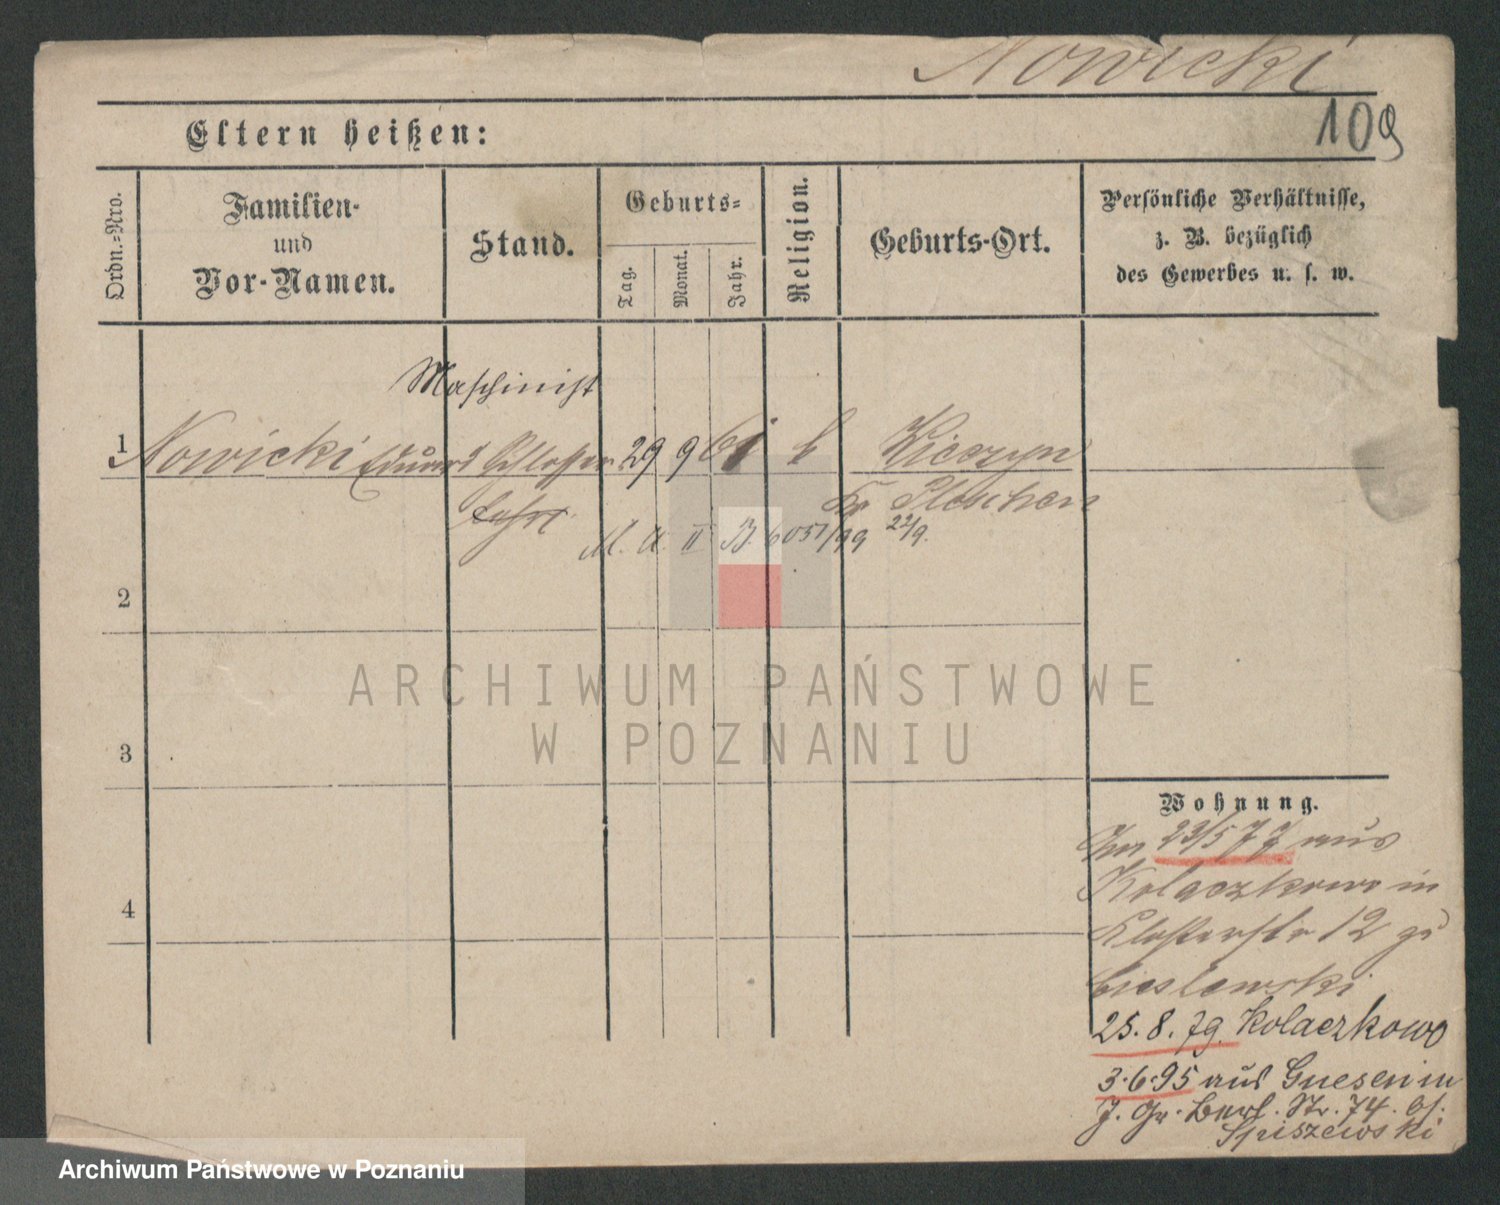 Nowicki
109
Eltern heißen:
Ordn.-Nro.
Familien-
und
Vor-Namen.
Stand.
Geburts-
Tag.
Monat.
Jahr.
Religion.
Geburts-Ort.
Persönliche Verhältnisse,
z. B. bezüglich
des Gewerbes u. s. w.
Maschinist
1 Nowicki Eduard Schlosser 29 9 61 k Kieczyn
Kr Pleschen
M. A. II B. 6051/99 22/9.
2
3
4
ARCHIWUM PAŃSTWOWE
W POZNANIU
Wohnung.
23/5 77 aus
Kolaczkowo in
Klosterstr 12 zu
Cieslewski
25. 8. 79. Kolaczkowo
3.6.95 aus Gnesen in
J. Gr. Berl. Str. 74. bei
Spiszewski
Archiwum Państwowe w Poznaniu